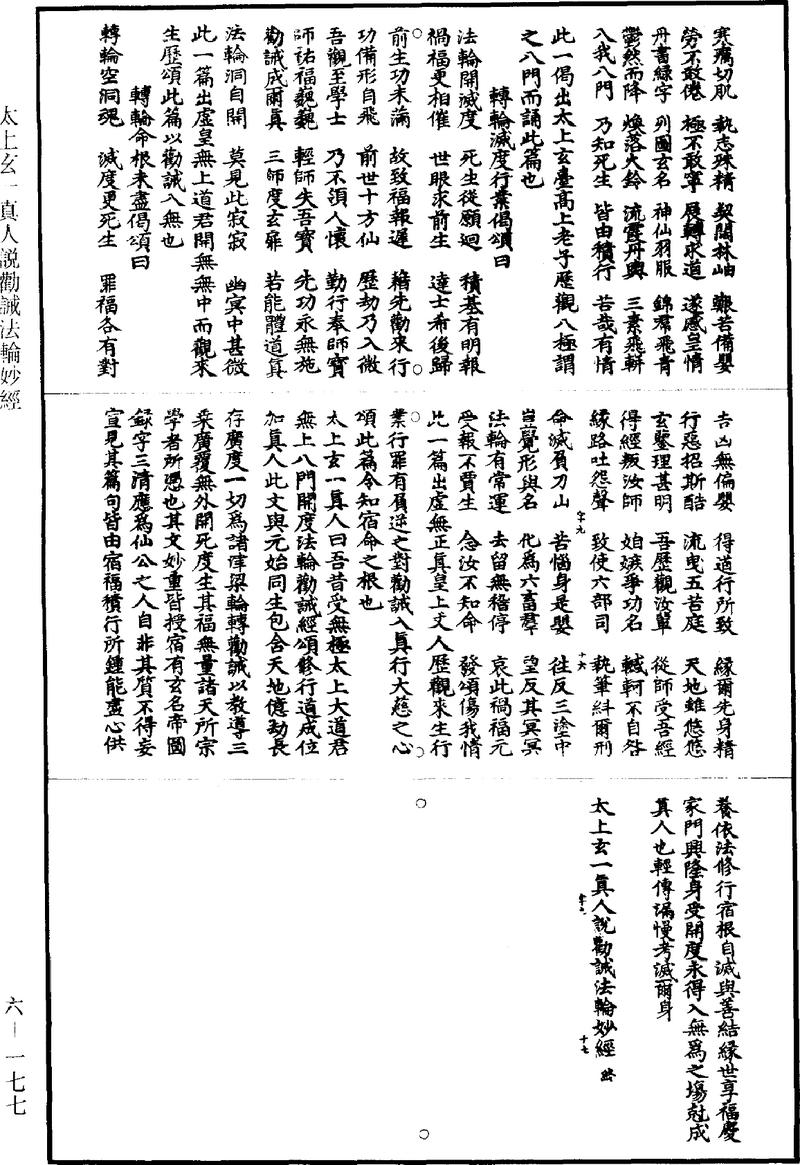 寒癘切肌　執志殊精　契闊林岫　艱苦備嬰
勞不敢倦　極不敢寧　展轉求道　遂感皇情
丹書綠字　列圖玄名　神仙羽服　錦帬飛青
鬱然而降　煥落火鈴　流霞丹輿　三素飛軿
入我八門　乃知死生　皆由積行　苦哉有情
此一偈出太上玄臺高上老子歷觀八極謂
之八門而誦此篇也
轉輪滅度行業偈頌曰
法輪開滅度　死生從願迴　積基有明報
禍福更相催　世眼求前生　達士希後歸
前生功未滿　故致福報遲　藉先勸來行
功備形自飛　前世十方仙　歷劫乃入微
吾觀至學士　乃不須入懷　勤行奉師寶
師祐福巍巍　輕師失吾寶　先功永無施
勸誡成爾真　三師度玄扉　若能體道真
法輪洞自開　莫見此寂寂　幽冥中甚微
此一篇出虛皇無上道君開無無中而觀來
生歷頌此篇以勸誡入無也
轉輪命根未盡偈頌曰
轉輪空洞魂　滅度更死生　罪福各有對
吉凶無偏嬰　得道行所致　緣爾先身精
行惡招斯酷　流曳五苦庭　天地雖悠悠
玄鑒理甚明　吾歷觀汝輩　從師受吾經
得經叛汝師　妲嫉爭功名　轗軻不自咎
緣路吐怨聲　致使六部司　執筆糾爾刑
命滅負刀山　苦惱身是嬰　往反三塗中
豈覺形與名　化為六畜羣　望反其冥冥
法輪有常運　去留無稽停　哀此禍福元
受報不賈生　念汝不知命　發頌傷我情
此一篇出虛無正真皇上丈人歷觀來生行
業行罪有負逆之對勸誡入真行大慈之心
頌此篇令知宿命之根也
太上玄一真人曰吾昔受無極太上大道君
無上八門開度法輪勸誡經頌修行道成位
加真人此文與元始同生包含天地億劫長
存廣度一切為諸津梁輪轉勸誡以教導三
乘廣覆無外開死度生其福無量諸天所宗
學者所憑也其文妙重皆授宿有玄名帝圖
錄字三清應為仙公之人自非其質不得妄
宣見其篇句皆由宿福積行所鍾能盡心供
養依法修行宿根自滅與善結緣世享福慶
家門興隆身受開度永得入無為之場尅成
真人也輕傳漏慢考滅爾身
太上玄一真人說勸誡法輪妙經
太上玄一真人說勸誡法輪妙經
六－一七七